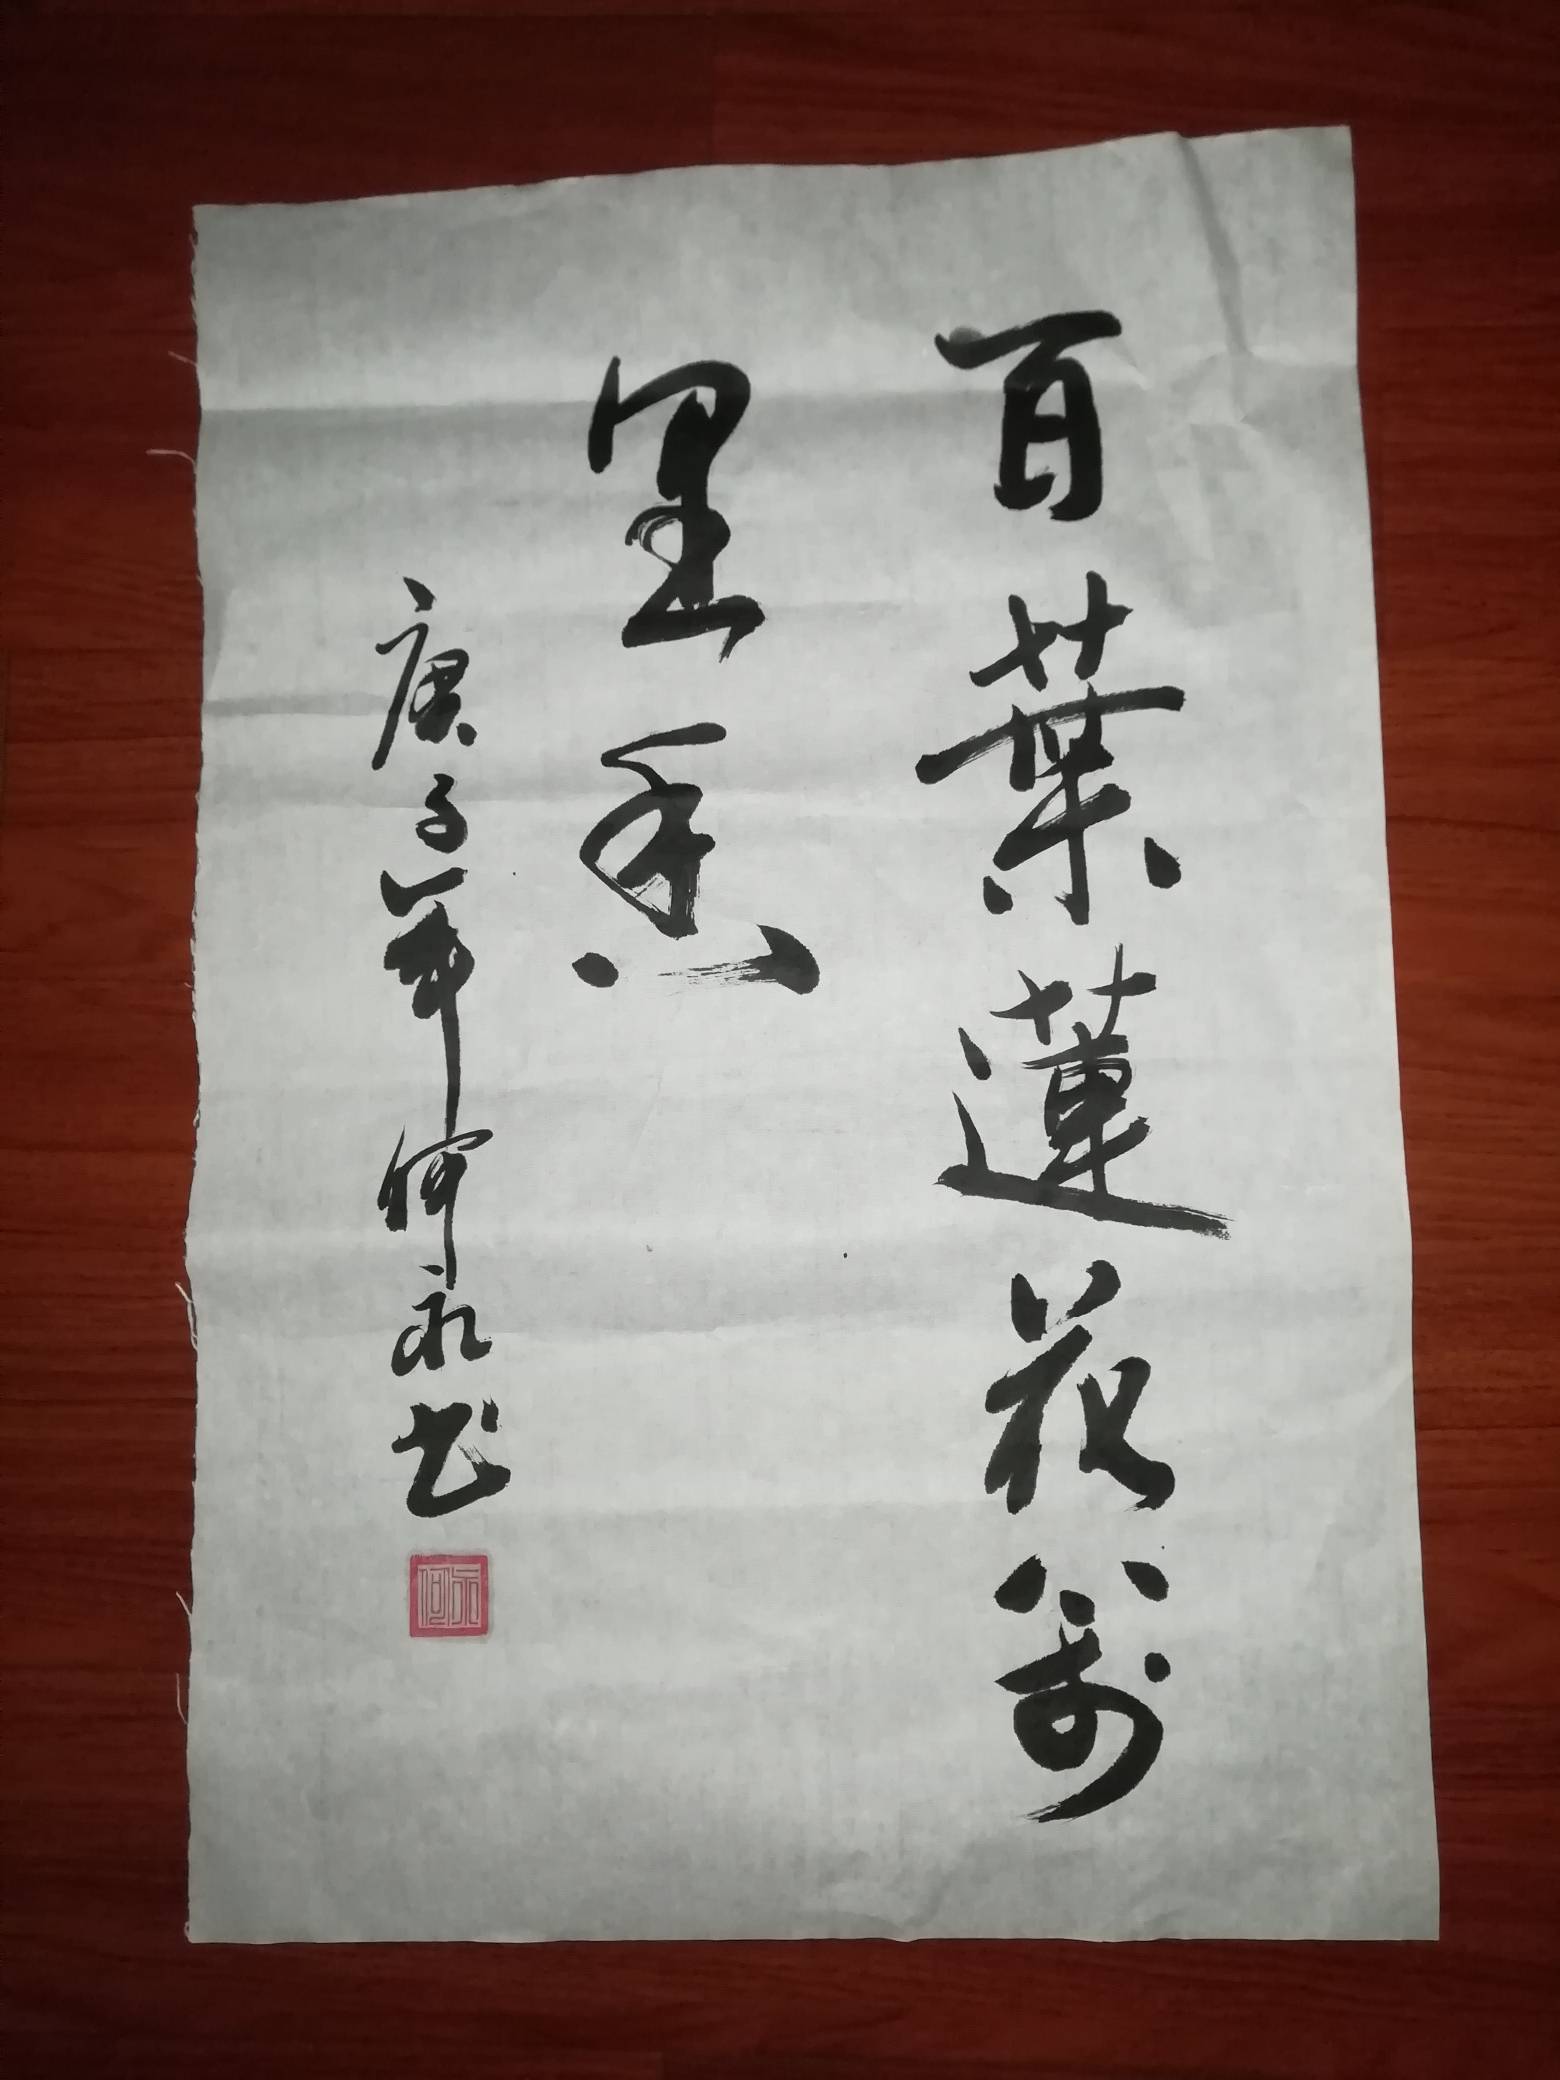 百葉蓮花萬
里香
庚子年永书